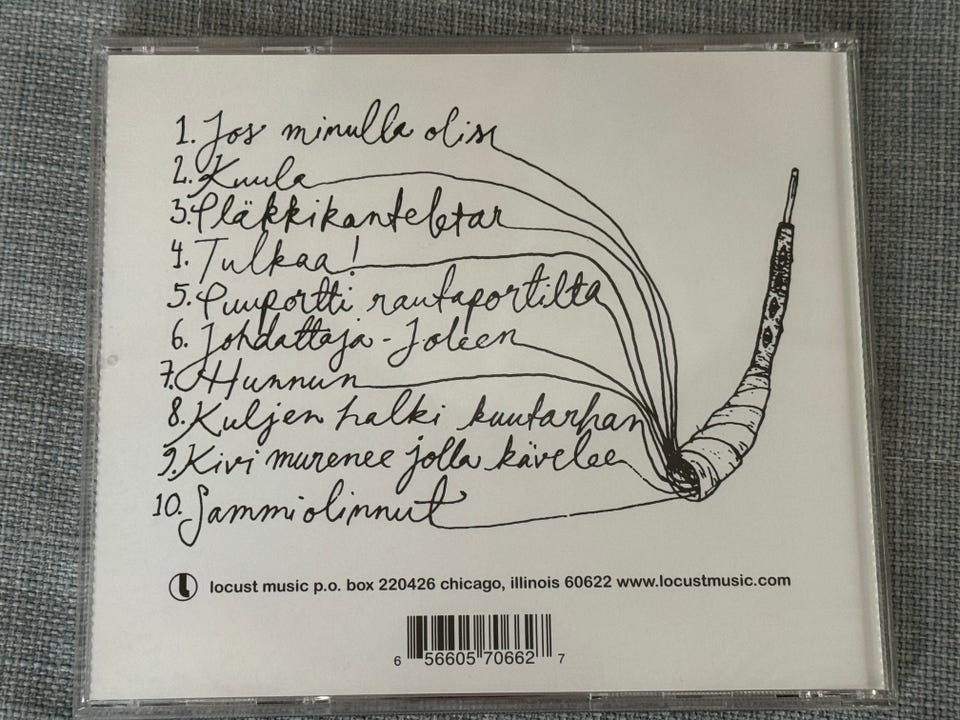 1. Jos minulla olisi
2. Kuula
3. Pläkkikanteletar
4. Tulkaa!
5. Puuportti rautaportilta
6. Johdattaja-Joleen
7. Hunnun
8. Kuljen halki kuutarhan
9. Kivi murenee jolla kävelee
10. Sammiolinnut
locust music p.o. box 220426 chicago, illinois 60622 www.locustmusic.com
6 56605 70662 7